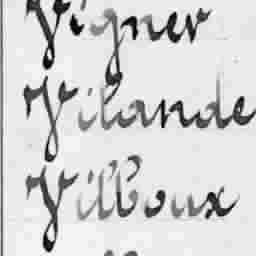 Vigner
Vilande
Villoux